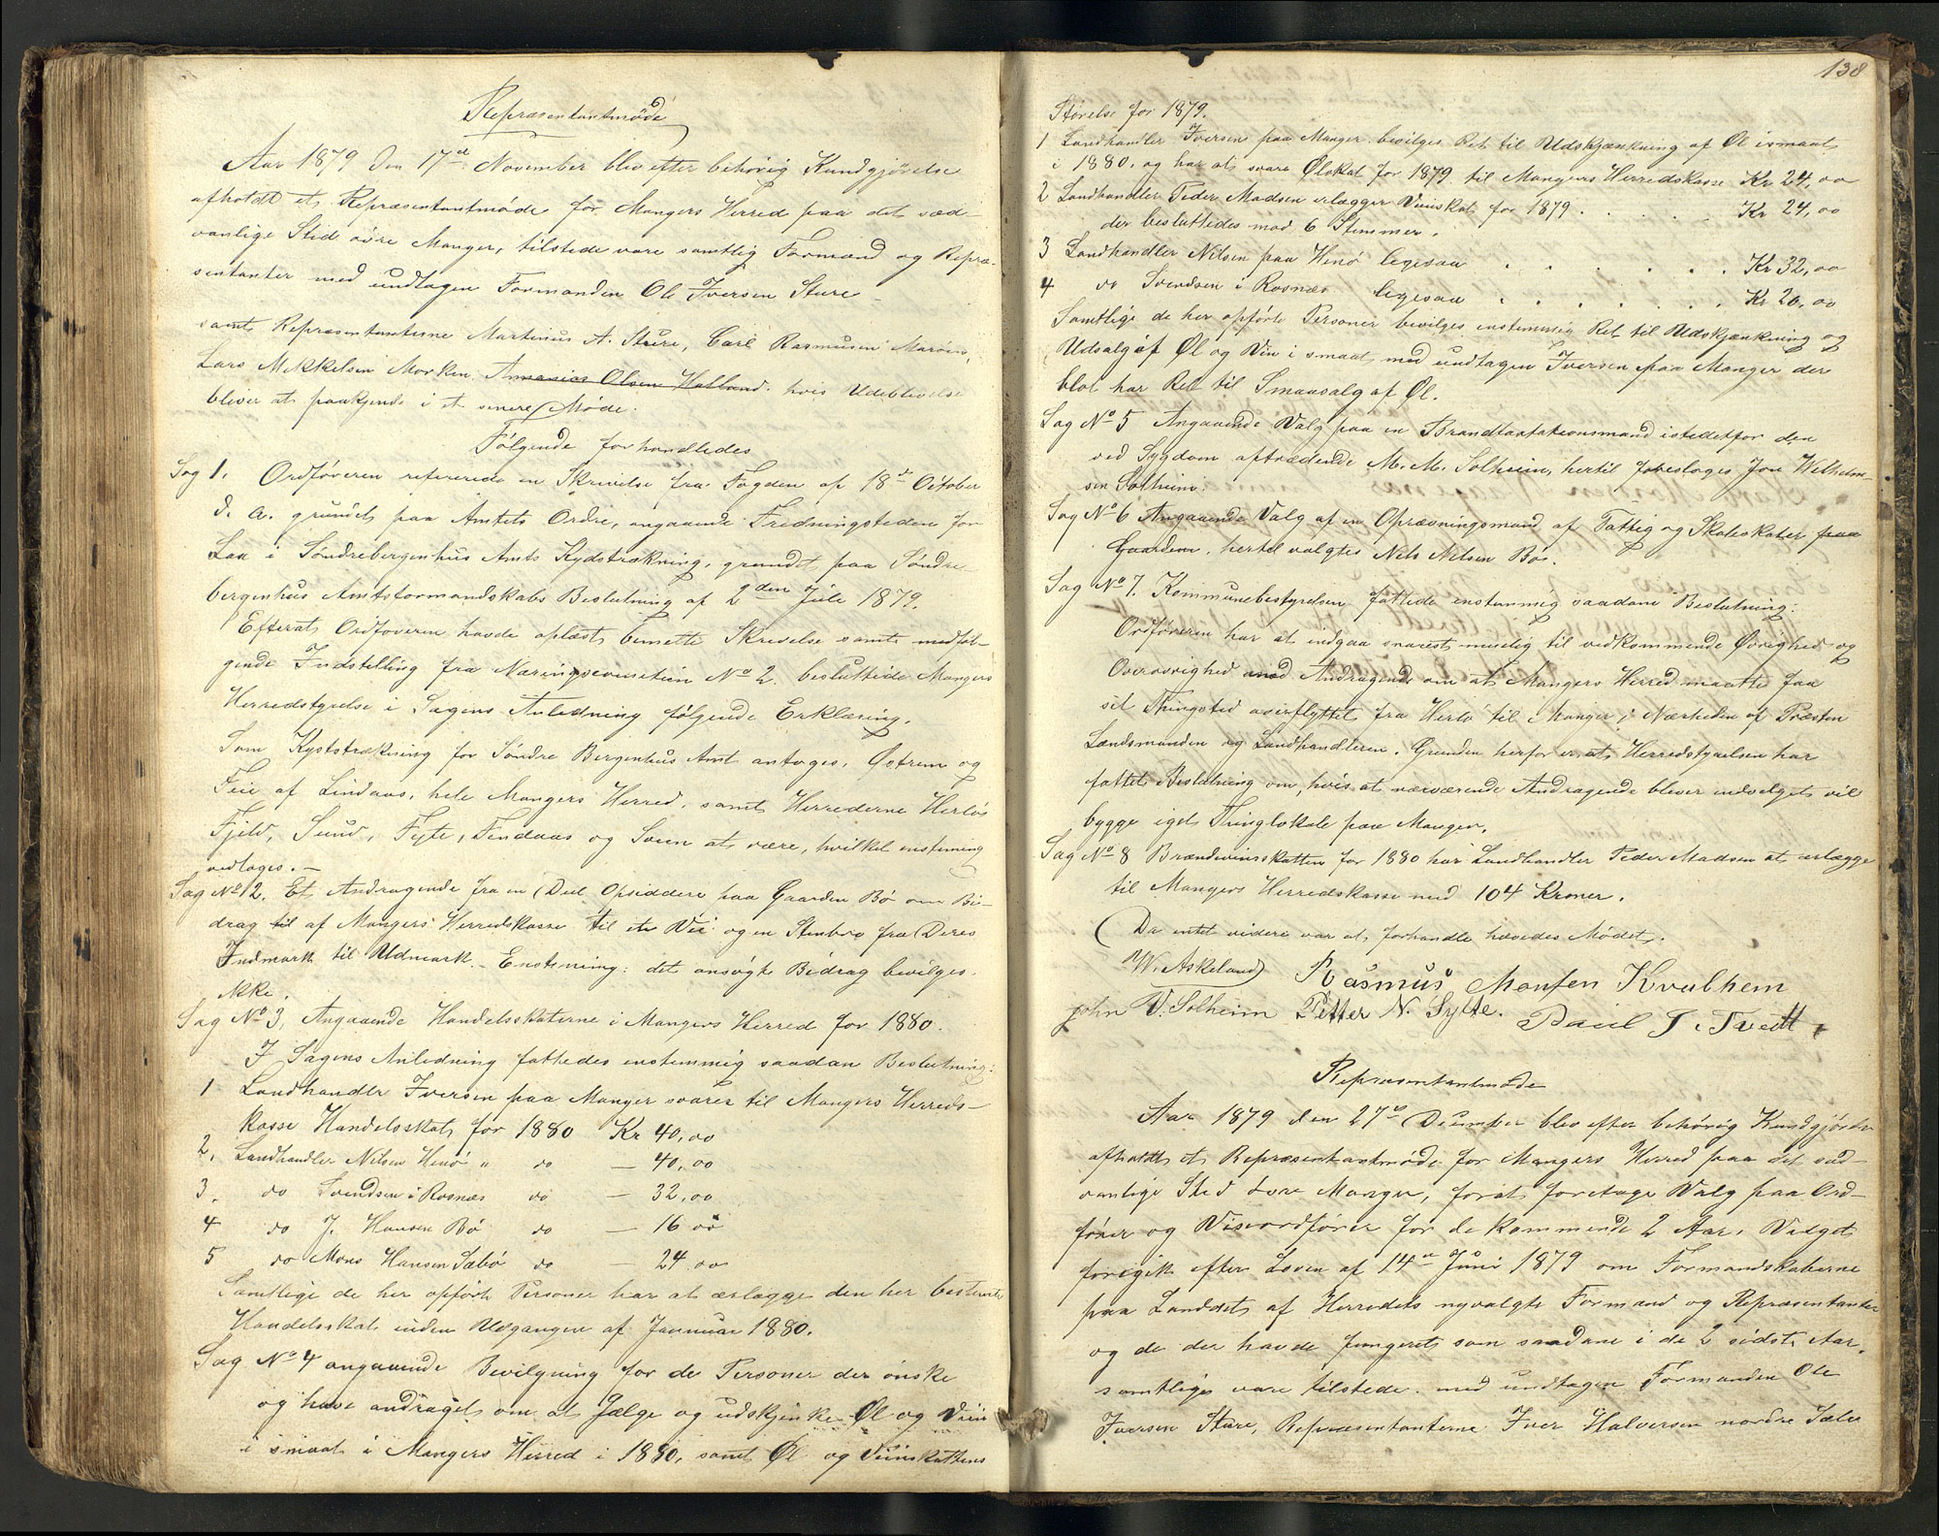 Repræsentantmøde
Aar 1879 den 17de November blev efter behørig Kundgjørelse
afholdt et Repræsentantmøde for Mangers Herred paa det sæd-
vanlige Sted øvre Manger, tilstede vare samtlig Formænd og Repræ-
sentanter med undtagen Formanden Ole Iversen Sture
samt Repræsentanterne Martinus A. Sture, Carl Rasmusen Marøen,
Lars Mikkelsen Morken Ananias Olsen Hatland. hvis Udeblivelse
bliver at paakjende i et senere Møde.
Følgende forhandledes
Sag 1. Ordføreren refererede en Skrivelse fra Fogden af 18de Oktober
d. A. grundet paa Amtets Ordre, angaaende Fredningstiden for
Lax i Søndrebergenhus Amts Kydstrækning, grundet paa Søndre-
bergenhus Amtsformandskabs Beslutning af 2den Juli 1879.
Efterat Ordføreren havde oplæst bemeldte Skrivelse samt medføl-
gende Indstilling fra Næringscomiteen No 2. besluttede Mangers
Herredstyrelse i Sagens Anledning følgende Erklæring.
Som Kyststrækning for Søndre Bergenhus Amt antages, Østrem og
Feie af Lindaas, hele Mangers Herred, samt Herrederne Herlø
Fjeld, Sund, Fitje, Findaas og Sveen at være, hvilket enstemig
vedtages. —
Sag No 2. Et Andragende fra en Deel Opsiddere paa Gaarden Bø om Bi-
drag til af Mangers Herredskasse til en Vei og en Stenbro fra Deres
Indmark til Udmark. Enstemig: det ansøgte Bidrag bevilges
ikke.
Sag No 3, Angaaende Handelsskaterne i Mangers Herred for 1880.
I Sagens Anledning fattedes enstemmig saadan Beslutning:
1 Landhandler Iversen paa Manger svarer til Mangers Herreds-
kasse Handelsskat for 1880 Kr 40,00
2, Landhandler Nilsen Henø " do — 40,00
3. do Svendsen i Rosnæs do — 32,00
4 do J. Hansen Bø do — 16 00
5 do Mons Hansen Sæbø do — 24,00
Samtlige de her opførte Personer har at ærlægge den her bestemte
Handelsskat inden Udgangen af Januar 1880.
Sag No 4 angaaende Bevilgning for de Personer der ønske
og have andraget om at sælge og udskjenke Øl og Viin
i smaat i Mangers Herred i 1880, samt Øl og Viinskattens
138
Størelse for 1879.
1 Landhandler Iversen paa Manger bevilges Ret til Udskjænkning af Øl i smaat
i 1880. og har at svare Ølskat for 1879 til Mangers Herredskasse Kr 24,00
2 Landhandler Peder Madsen erlægger Viinskat for 1879 . . . . . Kr 24,00
der besluttedes mod 6 Stemmer.
3 Landhandler Nilsen paa Henø ligesaa . . . . . . Kr 32,00
4 do Svendsen i Rosnæs ligesaa . . . . . . Kr 20,00
Samtlige de her opførte Personer bevilges enstemmig Ret til Udskjænkning og
Udsalg af Øl og Viin i smaat, med undtagen Iversen paa Manger der
blot har Ret til Smaasalg af Øl.
Sag No 5 Angaaende Valg paa en Brandtaxtationsmand istedetfor den
ved Sygdom aftrædende M. M. Solheim, hertil foreslages Jon Wilhelm-
sen Solheim.
Sag No 6 Angaaende Valg af en Oprævningsmand af Fattig og Skoleskater paa
Gaarden. hertil valgtes Nils Nilsen Bø.
Sag No 7. Kommunebestyrelsen fattede enstemmig saadan Beslutning:
Ordføreren har at indgaa snarest muelig til vedkommende Øvrighed og
Overøvrighed med Andragende om at Mangers Herred maatte faa
sit Thingsted overflyttet fra Herlø til Manger i Nærheden af Præsten
Lændsmanden og Landhandleren. Grunden herfor er at Herredstyrelsen har
fattet Beslutning om, hvis at nærværende Andragende bliver indvelget vil
bygge eget Thinglokale paa Manger.
Sag No 8 Brændevinsskatten for 1880 har Landhandler Peder Madsen at erlægge
til Mangers Herredskasse med 104 Kroner.
Da intet videre var at forhandle hævedes Mødet.
W. Askeland Rasmus Monsen Kvalhem
John V. Solheim Petter N. Sylte. Paul J. Tvedt,
Repræsentantmøde
Aar 1879 den 27de December blev efter behørig Kundgjørelse
afholdt et Repræsentantmøde for Mangers Herred paa det sæd-
vanlige Sted øvre Manger, forat foretage Valg paa Ord-
fører og Viseordfører for de kommende 2 Aar. Valget
foregik efter Loven af 14de Juni 1879 om Formandskaberne
paa Landdet af Herredets nyvalgte Formænd og Repræsentanter
og de der havde fungeret som saadane i de 2 sidste Aar,
samtlige vare tilstede. med undtagen Formanden Ole
Iversen Sture, Repræsentanterne Iver Halversen nordre Sæbø